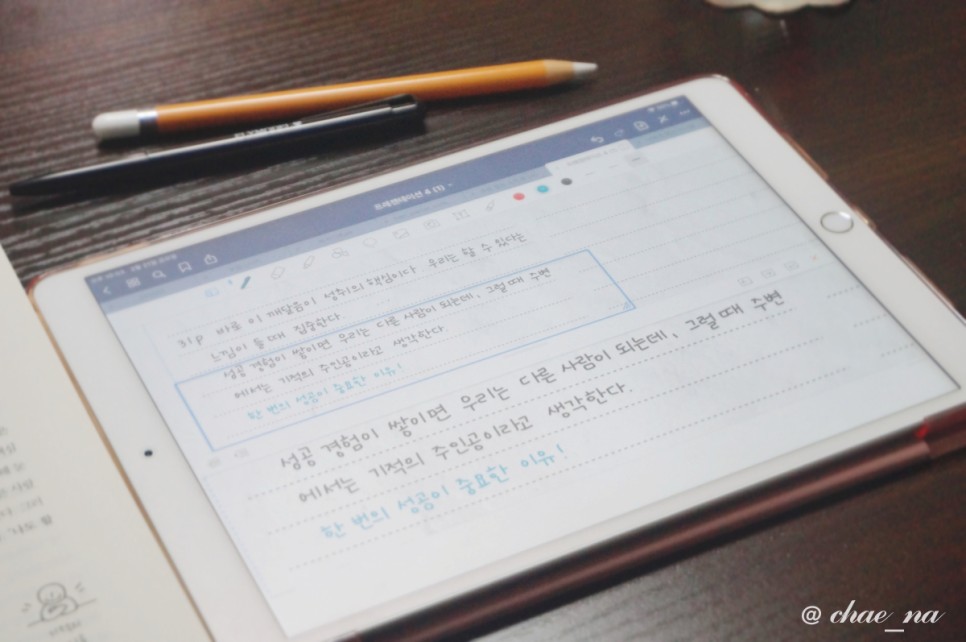 프레젠테이션 4 (1)
31p 바로 이 깨달음이 성취의 핵심이다. 우리는 할 수 있다는
느낌이 들 때 집중한다.
성공 경험이 쌓이면 우리는 다른 사람이 되는데, 그럴 때 주변
에서는 기적의 주인공이라고 생각한다.
한 번의 성공이 중요한 이유!
성공 경험이 쌓이면 우리는 다른 사람이 되는데, 그럴 때 주변
에서는 기적의 주인공이라고 생각한다.
한 번의 성공이 중요한 이유!
@chae_na